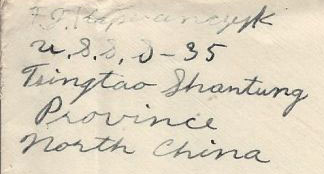 U.S.S. S-35
Tsingtao Shantung
Province
North China